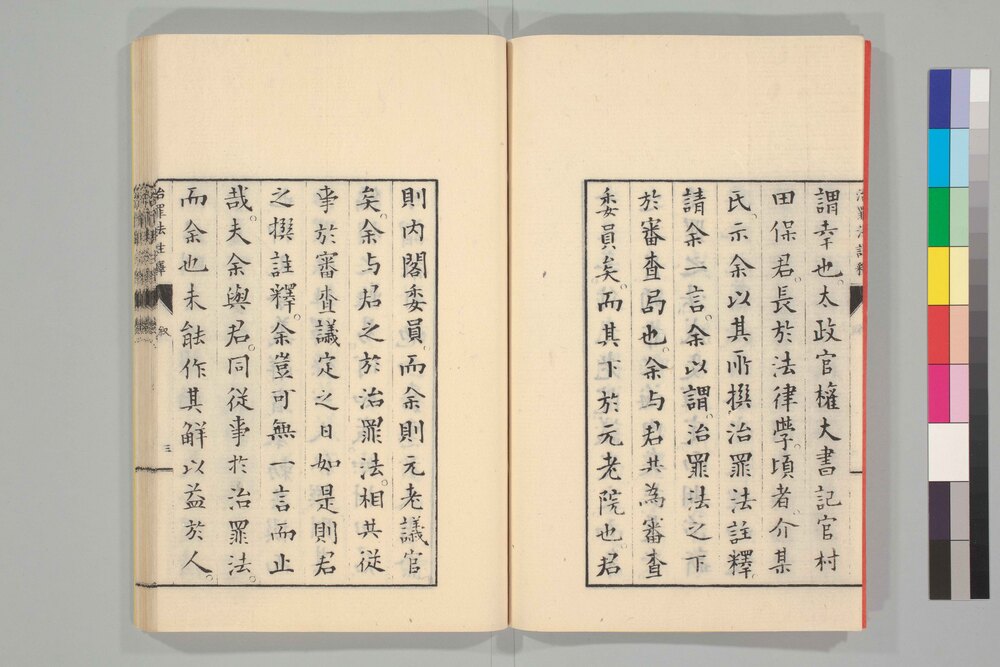 謂幸也。太政官權大書記官村
田保君。長於法律學。頃者。介某
氏。示余以其所撰治罪法註釋。
請余一言。余以謂。治罪法之下
於審査局也。余与君共為審査
委員矣。而其下於元老院也。君
則内閣委員。而余則元老議官
矣。余与君之於治罪法。相共從
事於審査議定之日如是。則君
之撰註釋。余豈可無一言而止
哉。夫余與君。同從事於治罪法。
而余也未能作其解以益於人。
治罪法註釋
叙
三